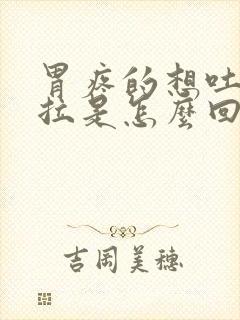 胃疼的想吐
拉是怎麼回
吉岡美穗